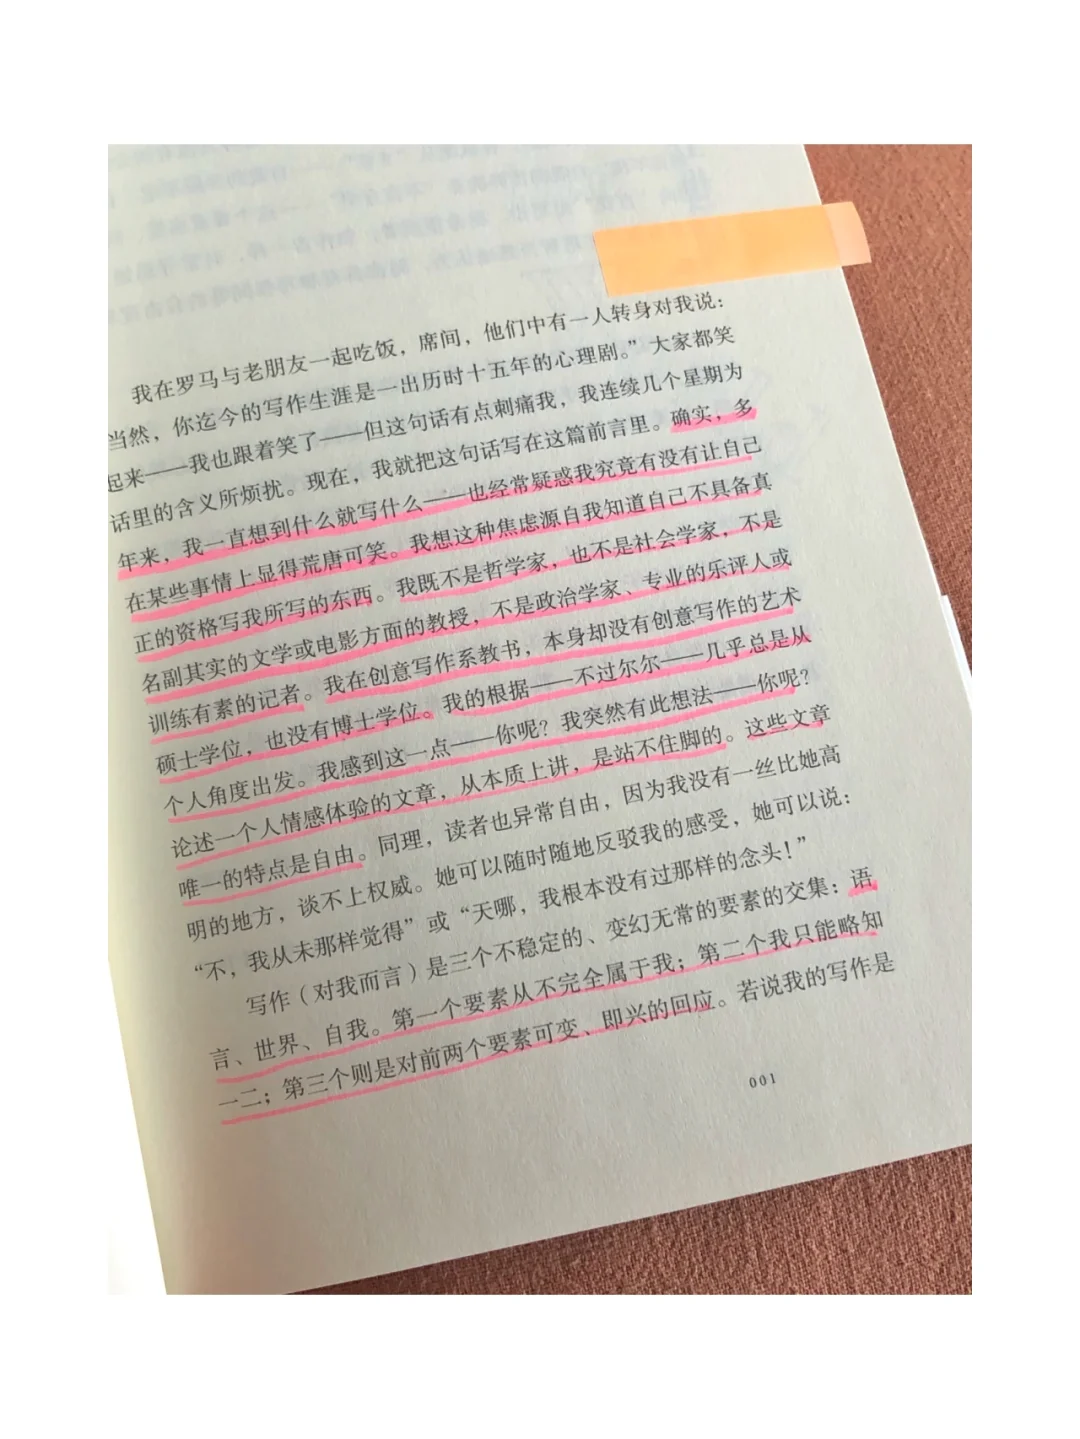 我在罗马与老朋友一起吃饭，席间，他们中有一人转身对我说：
当然，你迄今的写作生涯是一出历时十五年的心理剧。”大家都笑
起来——我也跟着笑了——但这句话有点刺痛我，我连续几个星期为
话里的含义所烦扰。现在，我就把这句话写在这篇前言里。确实，多
年来，我一直想到什么就写什么——也经常疑惑我究竟有没有让自己
在某些事情上显得荒唐可笑。我想这种焦虑源自我知道自己不具备真
正的资格写我所写的东西。我既不是哲学家，也不是社会学家，不是
名副其实的文学或电影方面的教授，不是政治学家、专业的乐评人或
训练有素的记者。我在创意写作系教书，本身却没有创意写作的艺术
硕士学位，也没有博士学位。我的根据——不过尔尔——几乎总是从
个人角度出发。我感到这一点——你呢？我突然有此想法——你呢？
论述一个人情感体验的文章，从本质上讲，是站不住脚的。这些文章
唯一的特点是自由。同理，读者也异常自由，因为我没有一丝比她高
明的地方，谈不上权威。她可以随时随地反驳我的感受，她可以说：
“不，我从未那样觉得”或“天哪，我根本没有过那样的念头！”
写作（对我而言）是三个不稳定的、变幻无常的要素的交集：语
言、世界、自我。第一个要素从不完全属于我；第二个我只能略知
一二；第三个则是对前两个要素可变、即兴的回应。若说我的写作是
001